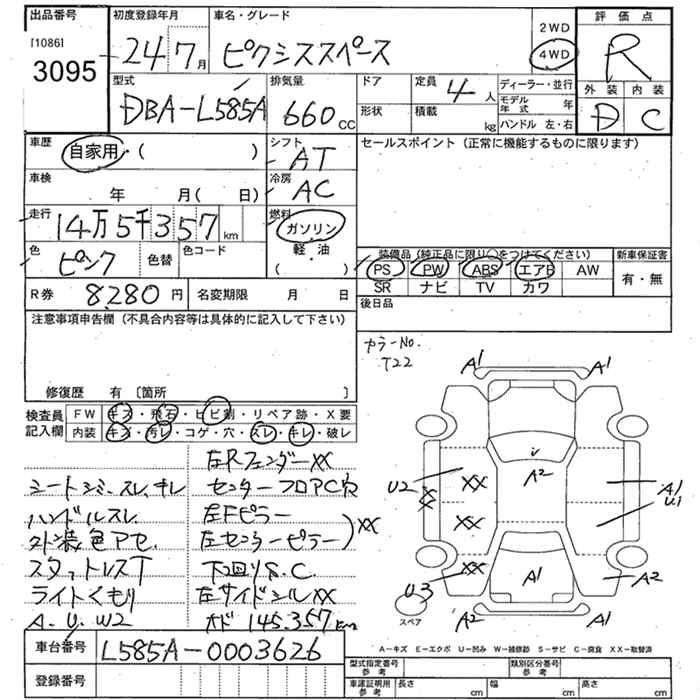 出品番号
[1086]
3095
初度登録年月
24 7月
車名・グレード
ピクシススペース
2WD
4WD
評価点
R
型式
DBA-L585A
排気量
660cc
ドア
形状
定員
4人
積載
kg
ディーラー・並行
モデル年式 年
ハンドル 左・右
外装 内装
D C
車歴
自家用 ( )
シフト
AT
セールスポイント (正常に機能するものに限ります)
車検
年 月( 日)
冷房
AC
走行
14万5千357km
燃料
ガソリン
軽・油
( )
色
ピンク
色替
色コード
装備品 (純正品に限り○をつけてください)
PS PW ABS エアB AW
SR ナビ TV カワ
新車保証書
有・無
R券
8280円
名変期限 月 日
後日品
注意事項申告欄 (不具合内容等は具体的に記入して下さい)
カラーNo.
T22
修復歴 有 〔箇所 〕
検査員記入欄
FW キズ・飛石・ヒビ割・リペア跡・X要
内装 キズ・汚レ・コゲ・穴・スレ・キレ・破レ
左Rフェンダーxx
シートシミ.スレ.キレ
センターフロアC穴
ハンドルスレ
左Fピラー
外装色アセ
左センターピラー
xx
スタットレスT
下回りS.C.
ライトくもり
左サイドシルxx
A.U.W2
オド 145.357km
A1
A1
A2
U2
xx
xx
xx
xx
A1
U1
U3
A1
A2
A2
A1
スペア
A－キズ E－エクボ U－凹み W－補修跡 S－サビ C－腐食 XX－取替済
車台番号
L585A-0003626
登録番号
型式指定番号 参考
類別区分番号 参考
車庫証明用 参考
長さ cm
幅 cm
高さ cm